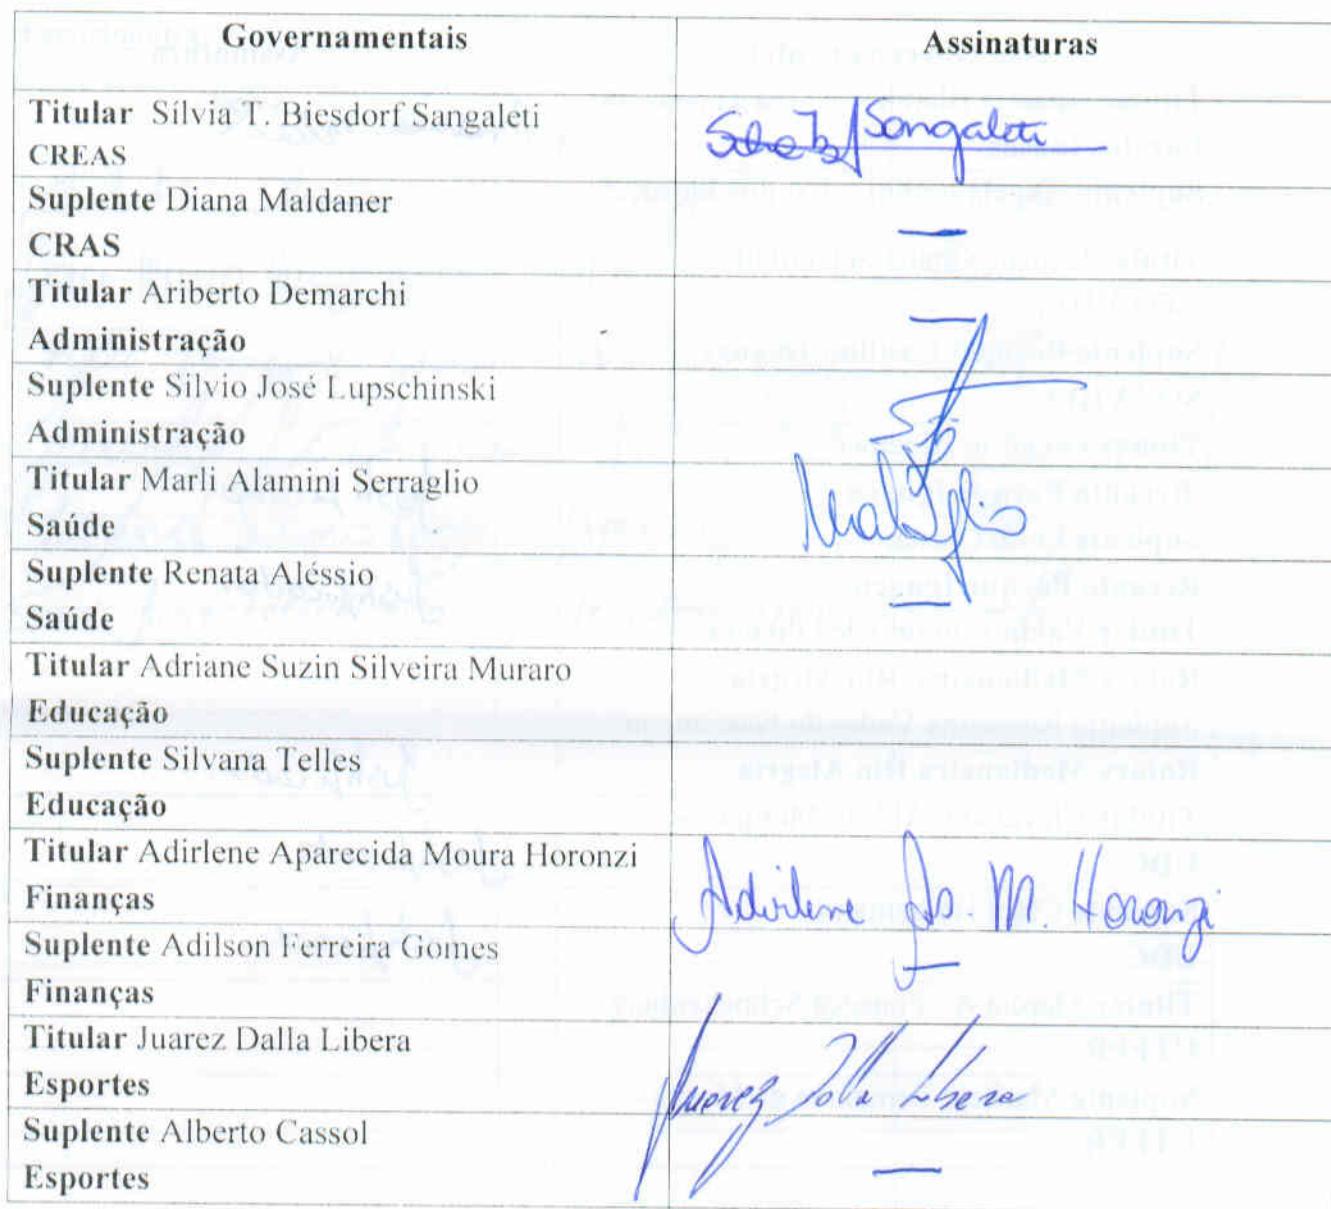 Governamentais Assinaturas
Titular Sílvia T. Biesdorf Sangaleti
CREAS
Sangaleti
Suplente Diana Maldaner
CRAS
—
Titular Ariberto Demarchi
Administração
—
Suplente Silvio José Lupschinski
Administração
Titular Marli Alamini Serraglio
Saúde
Suplente Renata Aléssio
Saúde
—
Titular Adriane Suzin Silveira Muraro
Educação
Suplente Silvana Telles
Educação
Titular Adirlene Aparecida Moura Horonzi
Finanças
Adirlene Ap. M. Horonzi
Suplente Adilson Ferreira Gomes
Finanças
—
Titular Juarez Dalla Libera
Esportes
Juarez Dalla Libera
Suplente Alberto Cassol
Esportes
—